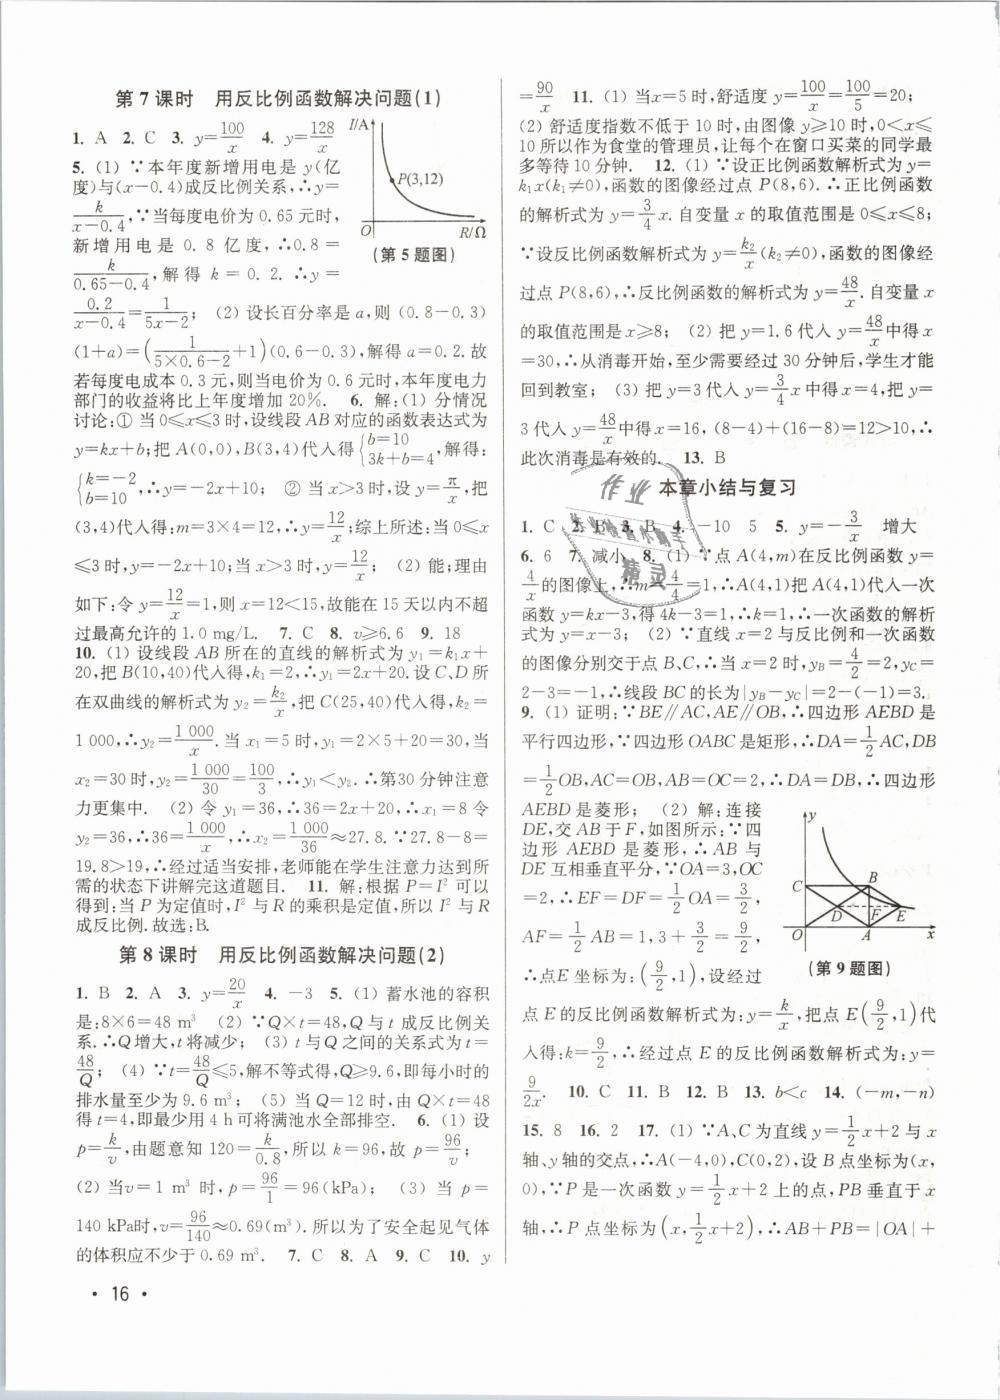 第7课时 用反比例函数解决问题(1)
1. A 2. C 3. y=100/x 4. y=128/x
5. (1) ∵本年度新增用电是 y(亿
度)与(x-0.4)成反比例关系,∴y=
k/(x-0.4),∵当每度电价为 0.65 元时,
新增用电是 0.8 亿度,∴0.8=
k/(0.65-0.4),解得 k=0.2.∴y=
I/A
P(3,12)
O
R/Ω
(第5题图)
0.2/(x-0.4)=1/(5x-2); (2) 设长百分率是 a,则 (0.8-0.3)
(1+a)=(1/(5×0.6-2)+1)(0.6-0.3),解得 a=0.2.故
若每度电成本 0.3 元,则当电价为 0.6 元时,本年度电力
部门的收益将比上年度增加 20%. 6. 解:(1) 分情况
讨论:① 当 0≤x≤3 时,设线段 AB 对应的函数表达式为
y=kx+b;把 A(0,0),B(3,4)代入得{b=10 3k+b=4,解得:
{k=-2 b=10,∴y=-2x+10; ② 当 x>3 时,设 y=π/x,把
(3,4)代入得:m=3×4=12,∴y=12/x;综上所述:当 0≤x
≤3 时,y=-2x+10;当 x>3 时,y=12/x; (2) 能;理由
如下:令 y=12/x=1,则 x=12<15,故能在 15 天以内不超
过最高允许的 1.0 mg/L. 7. C 8. v≥6.6 9. 18
10. (1) 设线段 AB 所在的直线的解析式为 y₁=k₁x+
20,把 B(10,40)代入得,k₁=2,∴y₁=2x+20.设 C、D 所
在双曲线的解析式为 y₂=k₂/x,把 C(25,40)代入得,k₂=
1 000,∴y₂=1 000/x.当 x₁=5 时,y₁=2×5+20=30,当
x₂=30 时,y₂=1 000/30=100/3,∴y₁<y₂.∴第30分钟注意
力更集中. (2) 令 y₁=36,∴36=2x+20,∴x₁=8 令
y₂=36,∴36=1 000/x,∴x₂=1 000/36≈27.8.∵27.8-8=
19.8>19,∴经过适当安排,老师能在学生注意力达到所
需的状态下讲解完这道题目. 11. 解:根据 P=I² 可以
得到:当 P 为定值时,I² 与 R 的乘积是定值,所以 I² 与 R
成反比例.故选:B.
第8课时 用反比例函数解决问题(2)
1. B 2. A 3. y=20/x 4. -3 5. (1) 蓄水池的容积
是:8×6=48 m³ (2) ∵Q×t=48,Q 与 t 成反比例关
系.∴Q增大,t将减少; (3) t与Q之间的关系式为 t=
48/Q; (4) ∵t=48/Q≤5,解不等式得,Q≥9.6,即每小时的
排水量至少为 9.6 m³; (5) 当 Q=12 时,由 Q×t=48
得 t=4,即最少用 4 h 可将满池水全部排空. 6. (1) 设
p=k/v,由题意知 120=k/0.8,所以 k=96,故 p=96/v;
(2) 当v=1 m³ 时,p=96/1=96(kPa); (3) 当 p=
140 kPa时,v=96/140≈0.69(m³).所以为了安全起见气体
的体积应不少于 0.69 m³. 7. C 8. A 9. C 10. y
=90/x 11. (1) 当x=5 时,舒适度 y=100/x=100/5=20;
(2) 舒适度指数不低于 10 时,由图像 y≥10 时,0<x≤
10 所以作为食堂的管理员,让每个在窗口买菜的同学最
多等待 10 分钟. 12. (1) ∵设正比例函数解析式为 y=
k₁x(k₁≠0),函数的图像经过点 P(8,6).∴正比例函数
的解析式为 y=3/4x.自变量 x 的取值范围是 0≤x≤8;
∵设反比例函数解析式为 y=k₂/x(k₂≠0),函数的图像经
过点 P(8,6),∴反比例函数的解析式为 y=48/x.自变量 x
的取值范围是 x≥8; (2) 把 y=1.6 代入 y=48/x中得 x
=30,∴从消毒开始,至少需要经过 30 分钟后,学生才能
回到教室; (3) 把 y=3 代入 y=3/4x 中得 x=4,把 y=
3 代入 y=48/x中得 x=16, (8-4)+(16-8)=12>10,∴
此次消毒是有效的. 13. B
本章小结与复习
1. C 2. B 3. B 4. -10 5 5. y=-3/x 增大
6. 6 7. 减小 8. (1) ∵点 A(4,m)在反比例函数 y=
4/x的图像上,∴m=4/4=1,∴A(4,1)把 A(4,1)代入一次
函数 y=kx-3,得 4k-3=1,∴k=1,∴一次函数的解析
式为 y=x-3; (2) ∵直线 x=2 与反比例和一次函数
的图像分别交于点 B、C,∴当 x=2 时,y_B=4/2=2,y_C=
2-3=-1,∴线段 BC 的长为|y_B-y_C|=2-(-1)=3.
9. (1) 证明:∵BE∥AC,AE∥OB,∴四边形 AEBD 是
平行四边形,∵四边形 OABC 是矩形,∴DA=1/2AC,DB
=1/2OB,AC=OB,AB=OC=2,∴DA=DB,∴四边形
AEBD 是菱形; (2) 解:连接
DE,交 AB 于 F,如图所示:∵四
边形 AEBD 是菱形,∴AB 与
DE 互相垂直平分,∵OA=3,OC
=2,∴EF=DF=1/2OA=3/2,
AF=1/2AB=1,3+3/2=9/2,
∴点E 坐标为:(9/2,1),设经过
y
C
B
D
F
E
O
A
x
(第9题图)
点 E 的反比例函数解析式为:y=k/x,把点 E(9/2,1)代
入得:k=9/2,∴经过点 E 的反比例函数解析式为:y=
9/2x. 10. C 11. B 12. B 13. b<c 14. (-m,-n)
15. 8 16. 2 17. (1) ∵A、C 为直线 y=1/2x+2 与 x
轴、y 轴的交点,∴A(-4,0),C(0,2),设 B 点坐标为(x,
0),∵P 是一次函数 y=1/2x+2 上的点,PB 垂直于 x
轴,∴P 点坐标为(x,1/2x+2),∴AB+PB=|OA|+
· 16 ·
作业
精灵